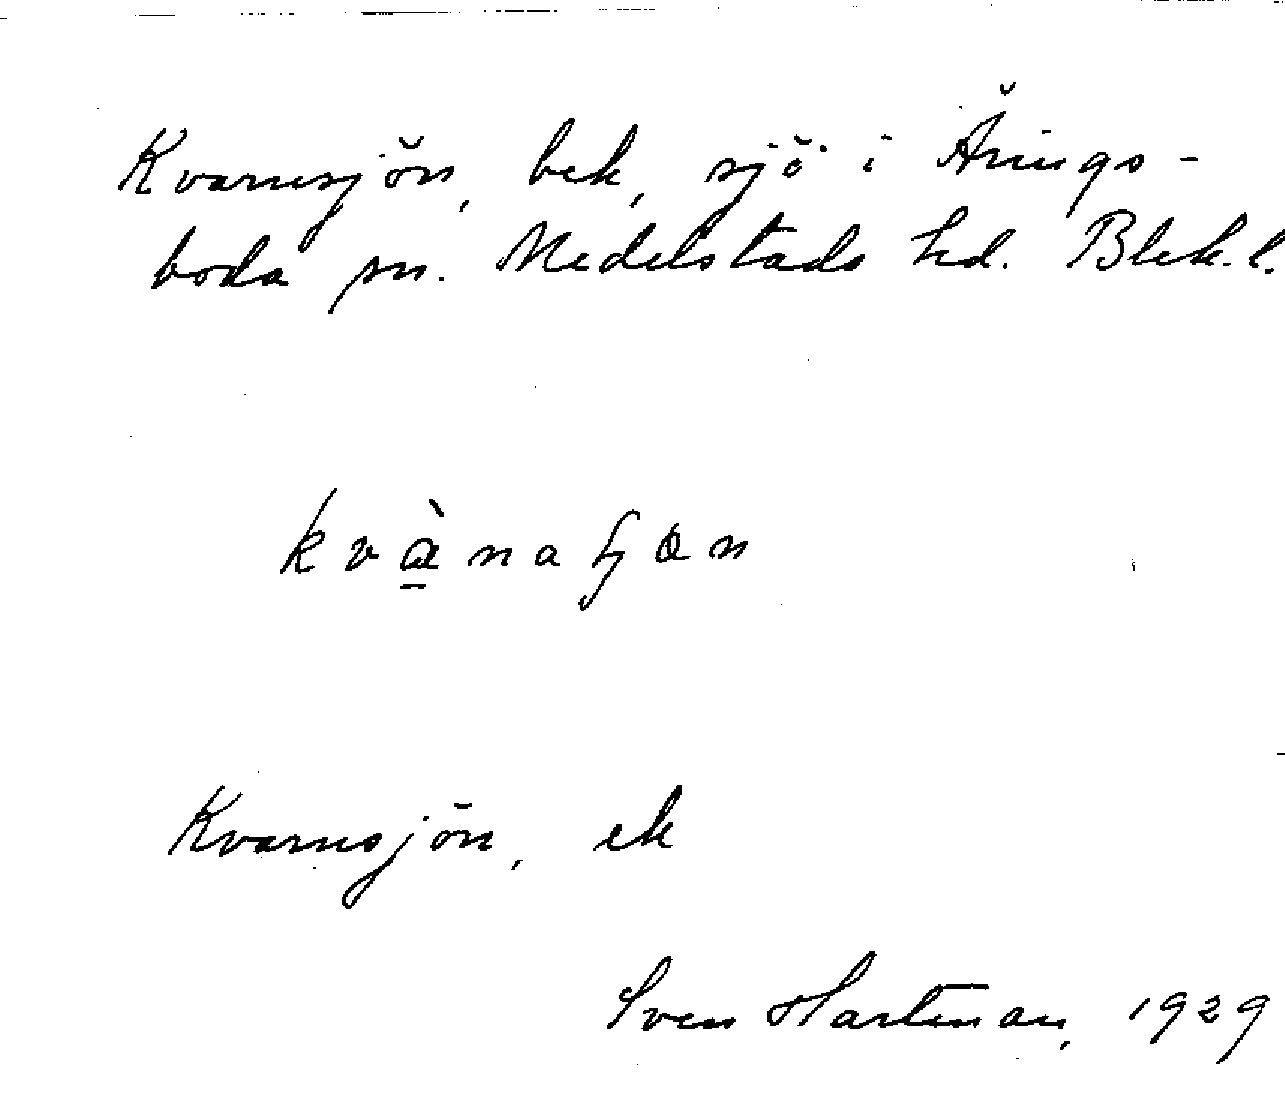 Kvarnsjön, bek, sjö i Årings-
boda sn. Medelstads hd. Blek. l.
Kvarnsjön, ek
Sven Hartman, 1929